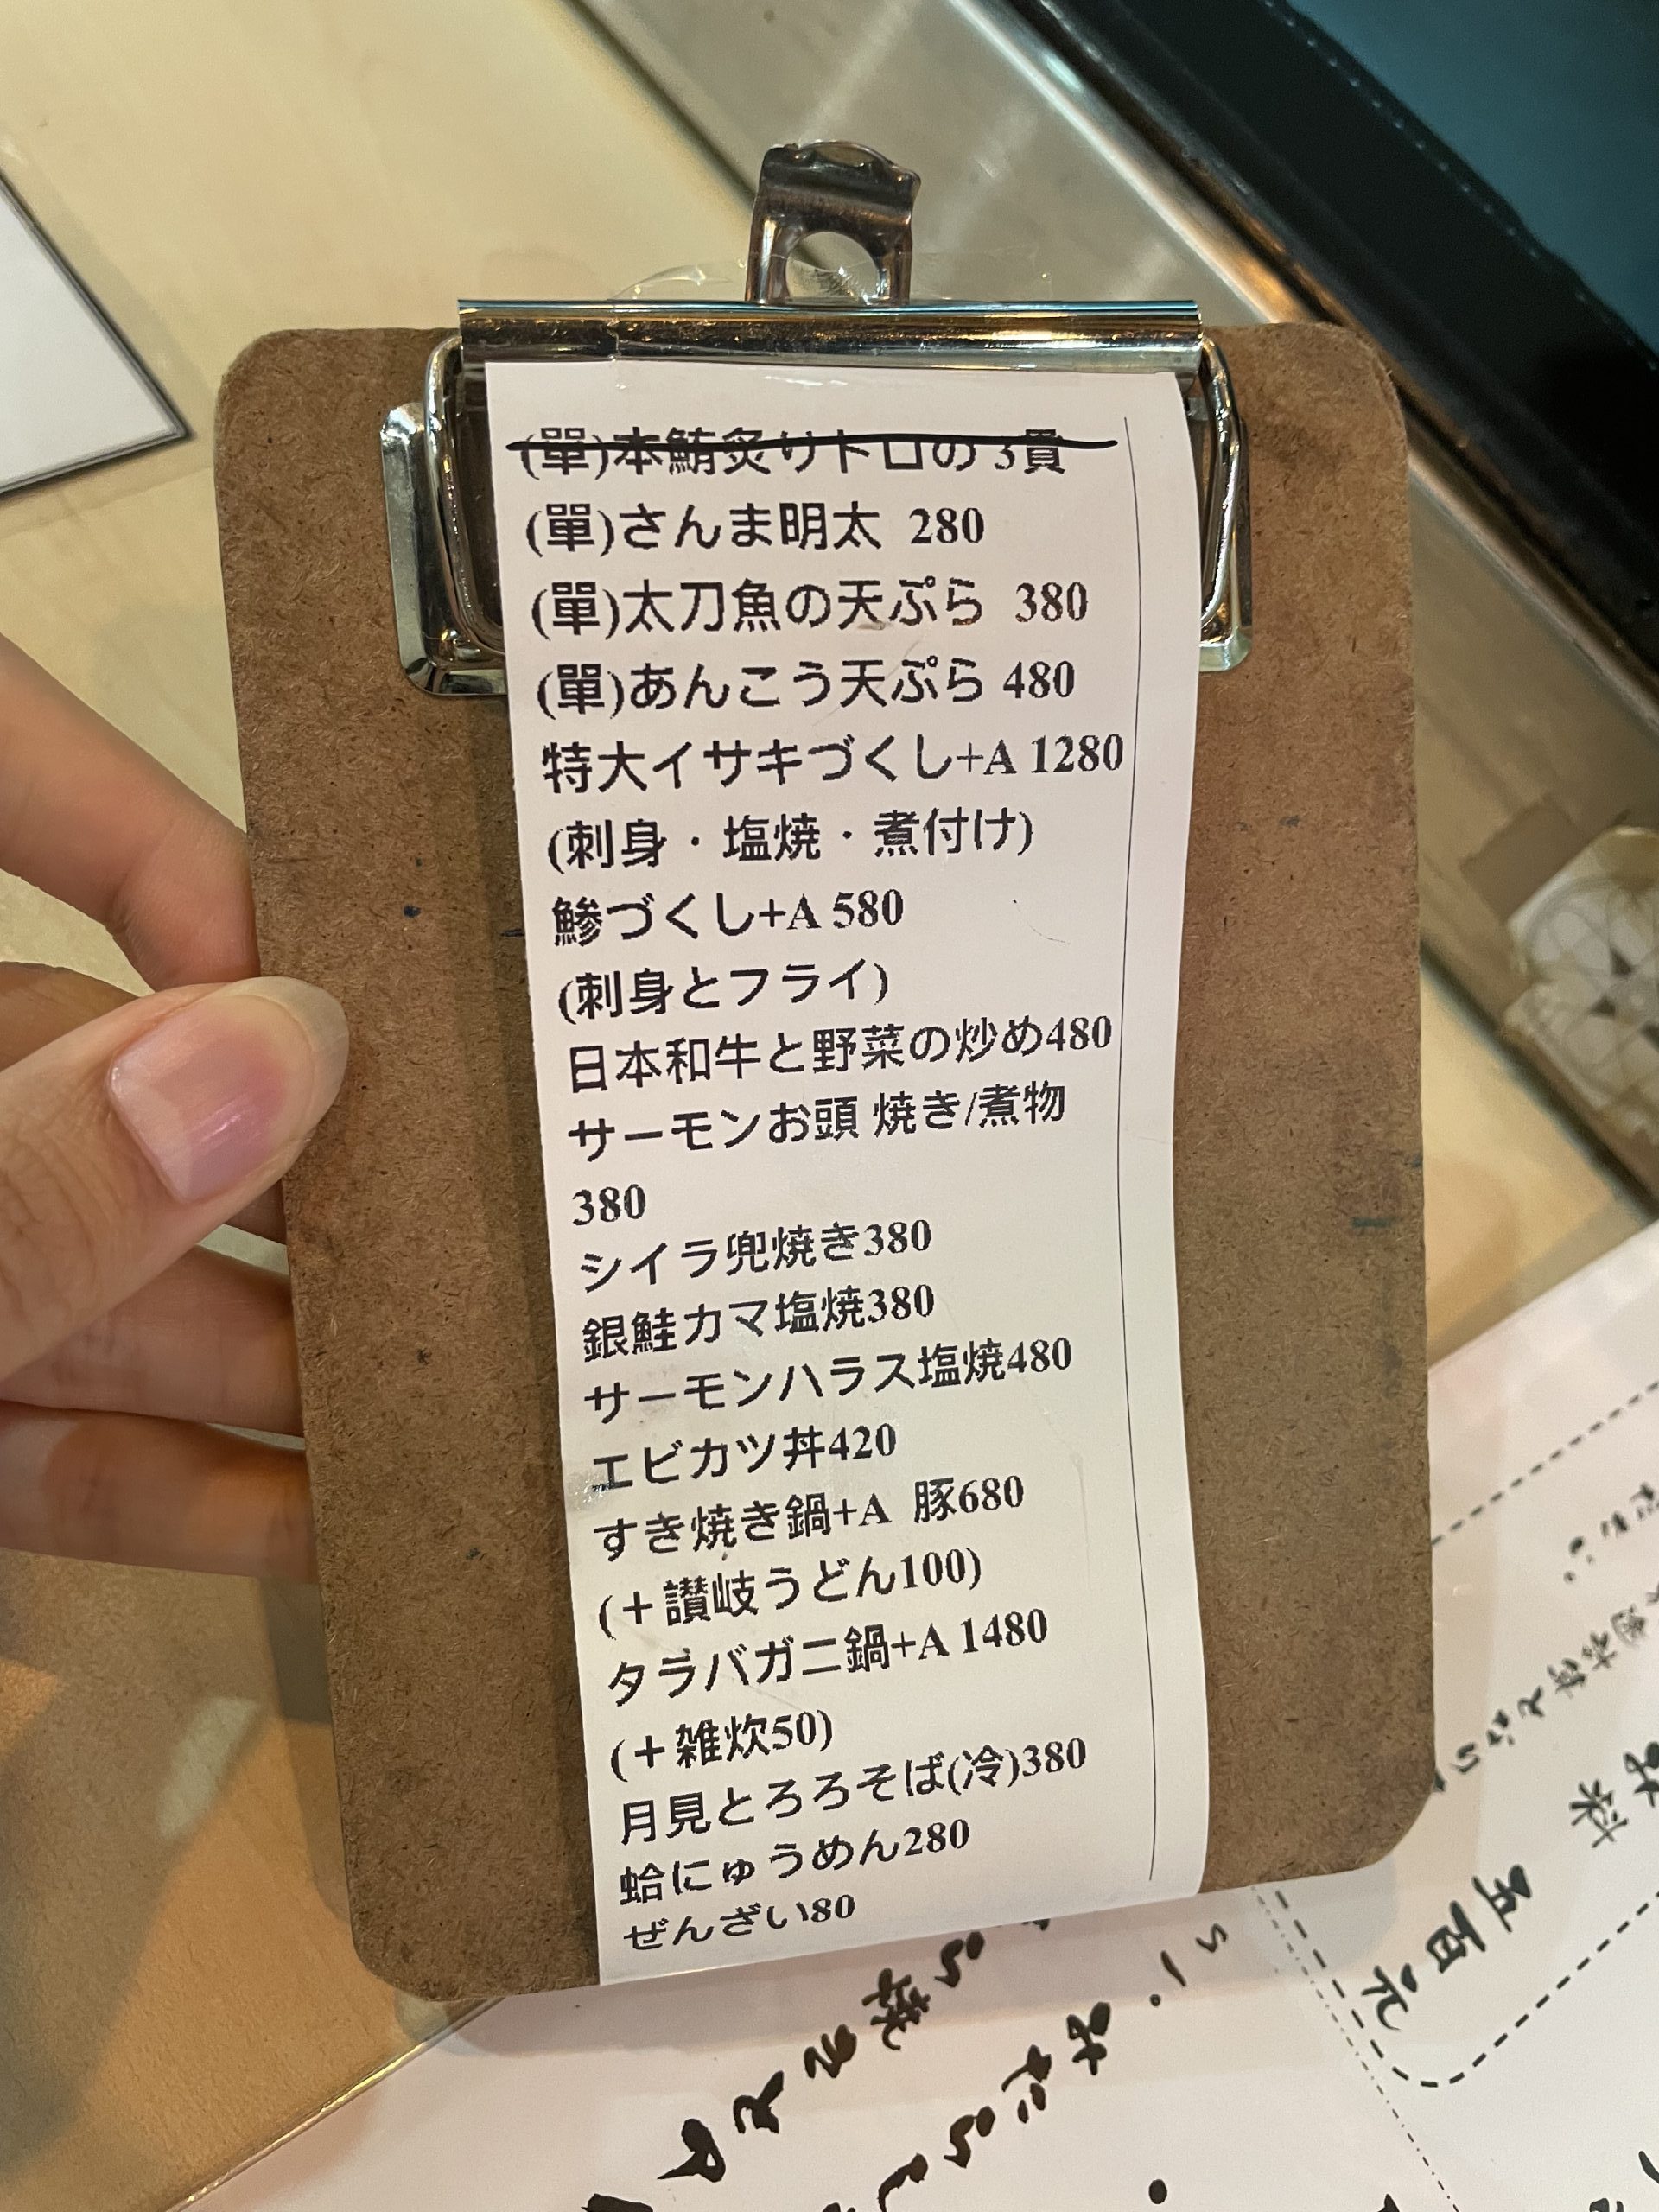 (單)本鮪炙りトロの 3貫
(單)さんま明太 280
(單)太刀魚の天ぷら 380
(單)あんこう天ぷら 480
特大イサキづくし+A 1280
(刺身・塩焼・煮付け)
鯵づくし+A 580
(刺身とフライ)
日本和牛と野菜の炒め480
サーモンお頭 焼き/煮物
380
シイラ兜焼き380
銀鮭カマ塩焼380
サーモンハラス塩焼480
エビカツ丼420
すき焼き鍋+A 豚680
(+讃岐うどん100)
タラバガニ鍋+A 1480
(+雑炊50)
月見とろろそば(冷)380
蛤にゅうめん280
ぜんざい80
五百元